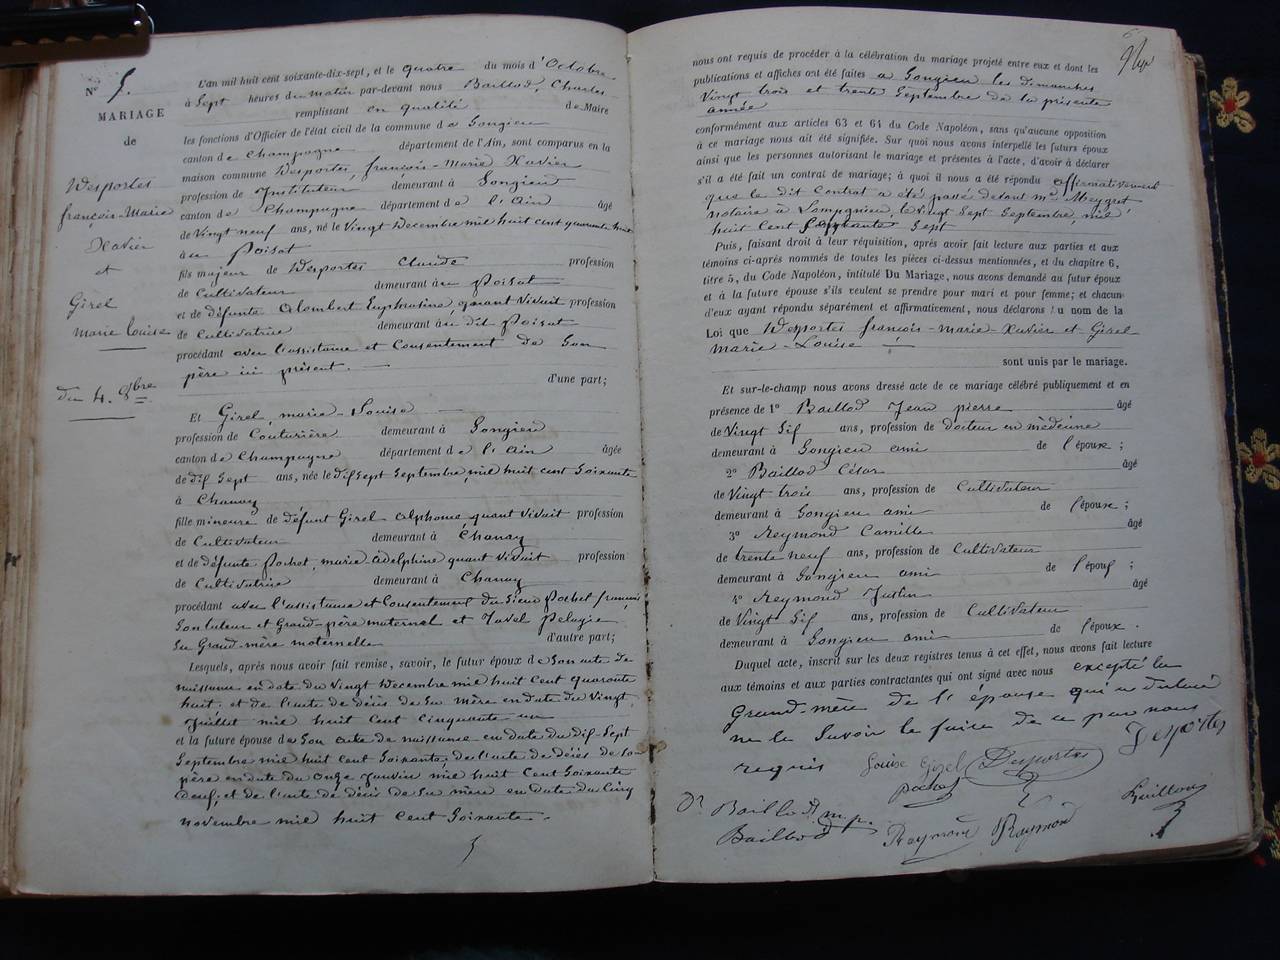 N° 5.
MARIAGE
de
Desportes
françois-Marie
Xavier
et
Girel
marie Louise
du 4. 8bre
L'an mil huit cent soixante-dix-sept, et le quatre du mois d'Octobre
à Sept heures du matin par-devant nous Baillod, Charles
remplissant en qualité de Maire
les fonctions d'Officier de l'état civil de la commune de Songieu
canton de Champagne département de l'Ain, sont comparus en la
maison commune Desportes, françois-Marie Xavier
profession de Instituteur demeurant à Songieu
canton de Champagne département de l'Ain âgé
de Vingt neuf ans, né le Vingt Decembre mil huit cent quarante huit
au Poisat
fils majeur de Desportes Claude profession
de Cultivateur demeurant au Poisat
et de défunte Colombert Euphrosine, quant vivait profession
de Cultivatrice demeurant au dit Poisat
procédant avec l'assistance et Consentement de Son
père ici présent.
d'une part;
Et Girel, marie-Louise
profession de Couturière demeurant à Songieu
canton de Champagne département de l'Ain âgée
de dix Sept ans, née le dix Sept Septembre, mil huit cent Soixante
à Chanay
fille mineure de défunt Girel Alphonse, quant vivait profession
de Cultivateur demeurant à Chanay
et de défunte Pochet, marie adelphine quant vivait profession
de Cultivatrice demeurant à Chanay
procédant avec l'assistance et Consentement du Sieur Pochet françois
Son tuteur et Grand-père maternel et Javel Pelagie
Sa Grand-mère maternelle d'autre part;
Lesquels, après nous avoir fait remise, savoir, le futur époux de Son acte de
naissance en date du vingt Decembre mil huit cent quarante
huit, et de l'acte de décès de Sa mère en date du Vingt
Juillet mil huit Cent Cinquante un
et la future épouse de Son acte de naissance en date du dix-Sept
Septembre mil huit cent Soixante, de l'acte de décès de Son
père en date du Onze Janvier mil huit Cent Soixante
neuf, et de l'acte de décès de Sa mère en date du Cinq
novembre mil huit cent Soixante.
nous ont requis de procéder à la célébration du mariage projeté entre eux et dont les
publications et affiches ont été faites a Songieu les dimanches
Vingt trois et trente Septembre de la présente
année
conformément aux articles 63 et 64 du Code Napoléon, sans qu'aucune opposition
à ce mariage nous ait été signifiée. Sur quoi nous avons interpellé les futurs époux
ainsi que les personnes autorisant le mariage et présentes à l'acte, d'avoir à déclarer
s'il a été fait un contrat de mariage; à quoi il nous a été répondu affirmativement
que le dit Contrat a été passé devant me Meyzret
notaire à Lompnieu, le vingt Sept Septembre, mil
huit cent Soixante Sept
Puis, faisant droit à leur réquisition, après avoir fait lecture aux parties et aux
témoins ci-après nommés de toutes les pièces ci-dessus mentionnées, et du chapitre 6,
titre 5, du Code Napoléon, intitulé Du Mariage, nous avons demandé au futur époux
et à la future épouse s'ils veulent se prendre pour mari et pour femme; et chacun
d'eux ayant répondu séparément et affirmativement, nous déclarons au nom de la
Loi que Desportes françois-marie-Xavier et Girel
marie-Louise
sont unis par le mariage.
Et sur-le-champ nous avons dressé acte de ce mariage célébré publiquement et en
présence de 1° Baillod Jean pierre âgé
de Vingt Six ans, profession de docteur en médecine
demeurant à Songieu ami de l'époux;
2° Baillod César âgé
de Vingt trois ans, profession de Cultivateur
demeurant à Songieu ami de l'époux;
3° Reymond Camille âgé
de trente neuf ans, profession de Cultivateur
demeurant à Songieu ami de l'époux;
4° Reymond Justin âgé
de Vingt Six ans, profession de Cultivateur
demeurant à Songieu ami de l'époux.
Duquel acte, inscrit sur les deux registres tenus à cet effet, nous avons fait lecture
aux témoins et aux parties contractantes qui ont signé avec nous excepté la
Grand-mère de l'épouse qui a déclaré
ne le Savoir le faire de ce par nous
requis Louise Girel Desportes Desportes
Pochet
Dr Baillod m.p. Baillod
Baillod Reymond Raymond